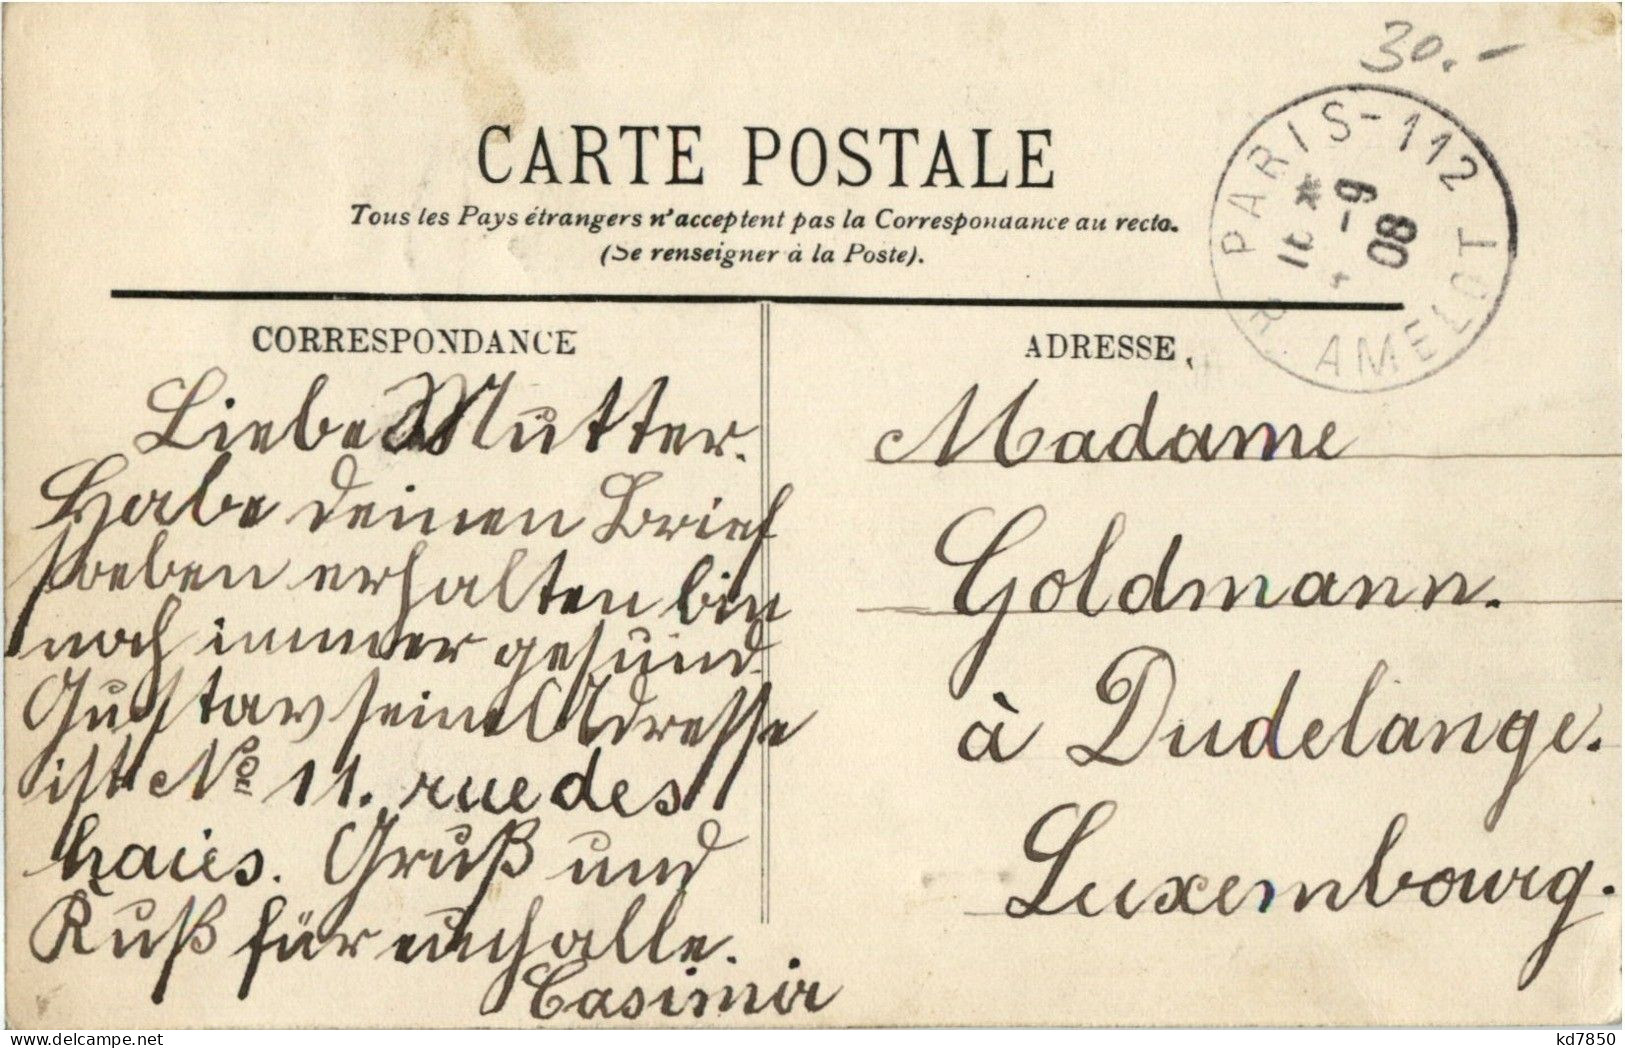 30.-
PARIS-112
R. AMELOT
-9
08
CARTE POSTALE
Tous les Pays étrangers n'acceptent pas la Correspondance au recto.
(Se renseigner à la Poste).
CORRESPONDANCE
ADRESSE
Liebe Mutter.
Habe deinen Brief
soeben erhalten bin
noch immer gesund
Gustav seine Adresse
ist No 11. rue des
haies. Gruß und
Kuß für euch alle.
Casimir
Madame
Goldmann.
à Dudelange.
Luxembourg.
kd7850